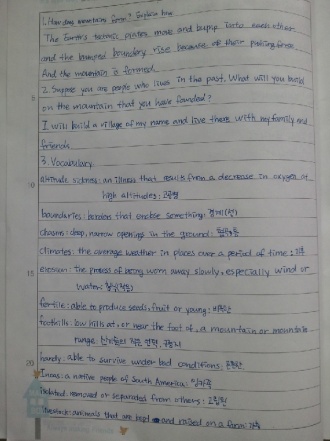 1. How do mountains form? Explain how.
The Earth's tectonic plates move and bump into each other
and the bumped boundary rise because of their pushing force.
And the mountain is formed.
2. Suppose you are people who lives in the past. What will you build
5
on the mountain that you have founded?
I will build a village of my name and live there with my family and
friends
3. Vocabulary
10
altitude sickness: an illness that results from a decrease in oxygen at
high altitudes: 고산병
boundaries: borders that enclose something: 경계(선)
chasms: deep, narrow openings in the ground:
climates: the average weather in places over a period of time: 기후
15
erosion: the process of being worn away slowly, especially wind or
water:
fertile: able to produce seeds, fruit or young: 비옥한
foothills: low hills at, or near the foot of, a mountain or mountain
range:
20
hardy: able to survive under bad conditions: 강한
Incas: a native people of South America: 잉카족
isolated: removed or separated from others: 고립된
livestock: animals that are kept and raised on a farm: 가축